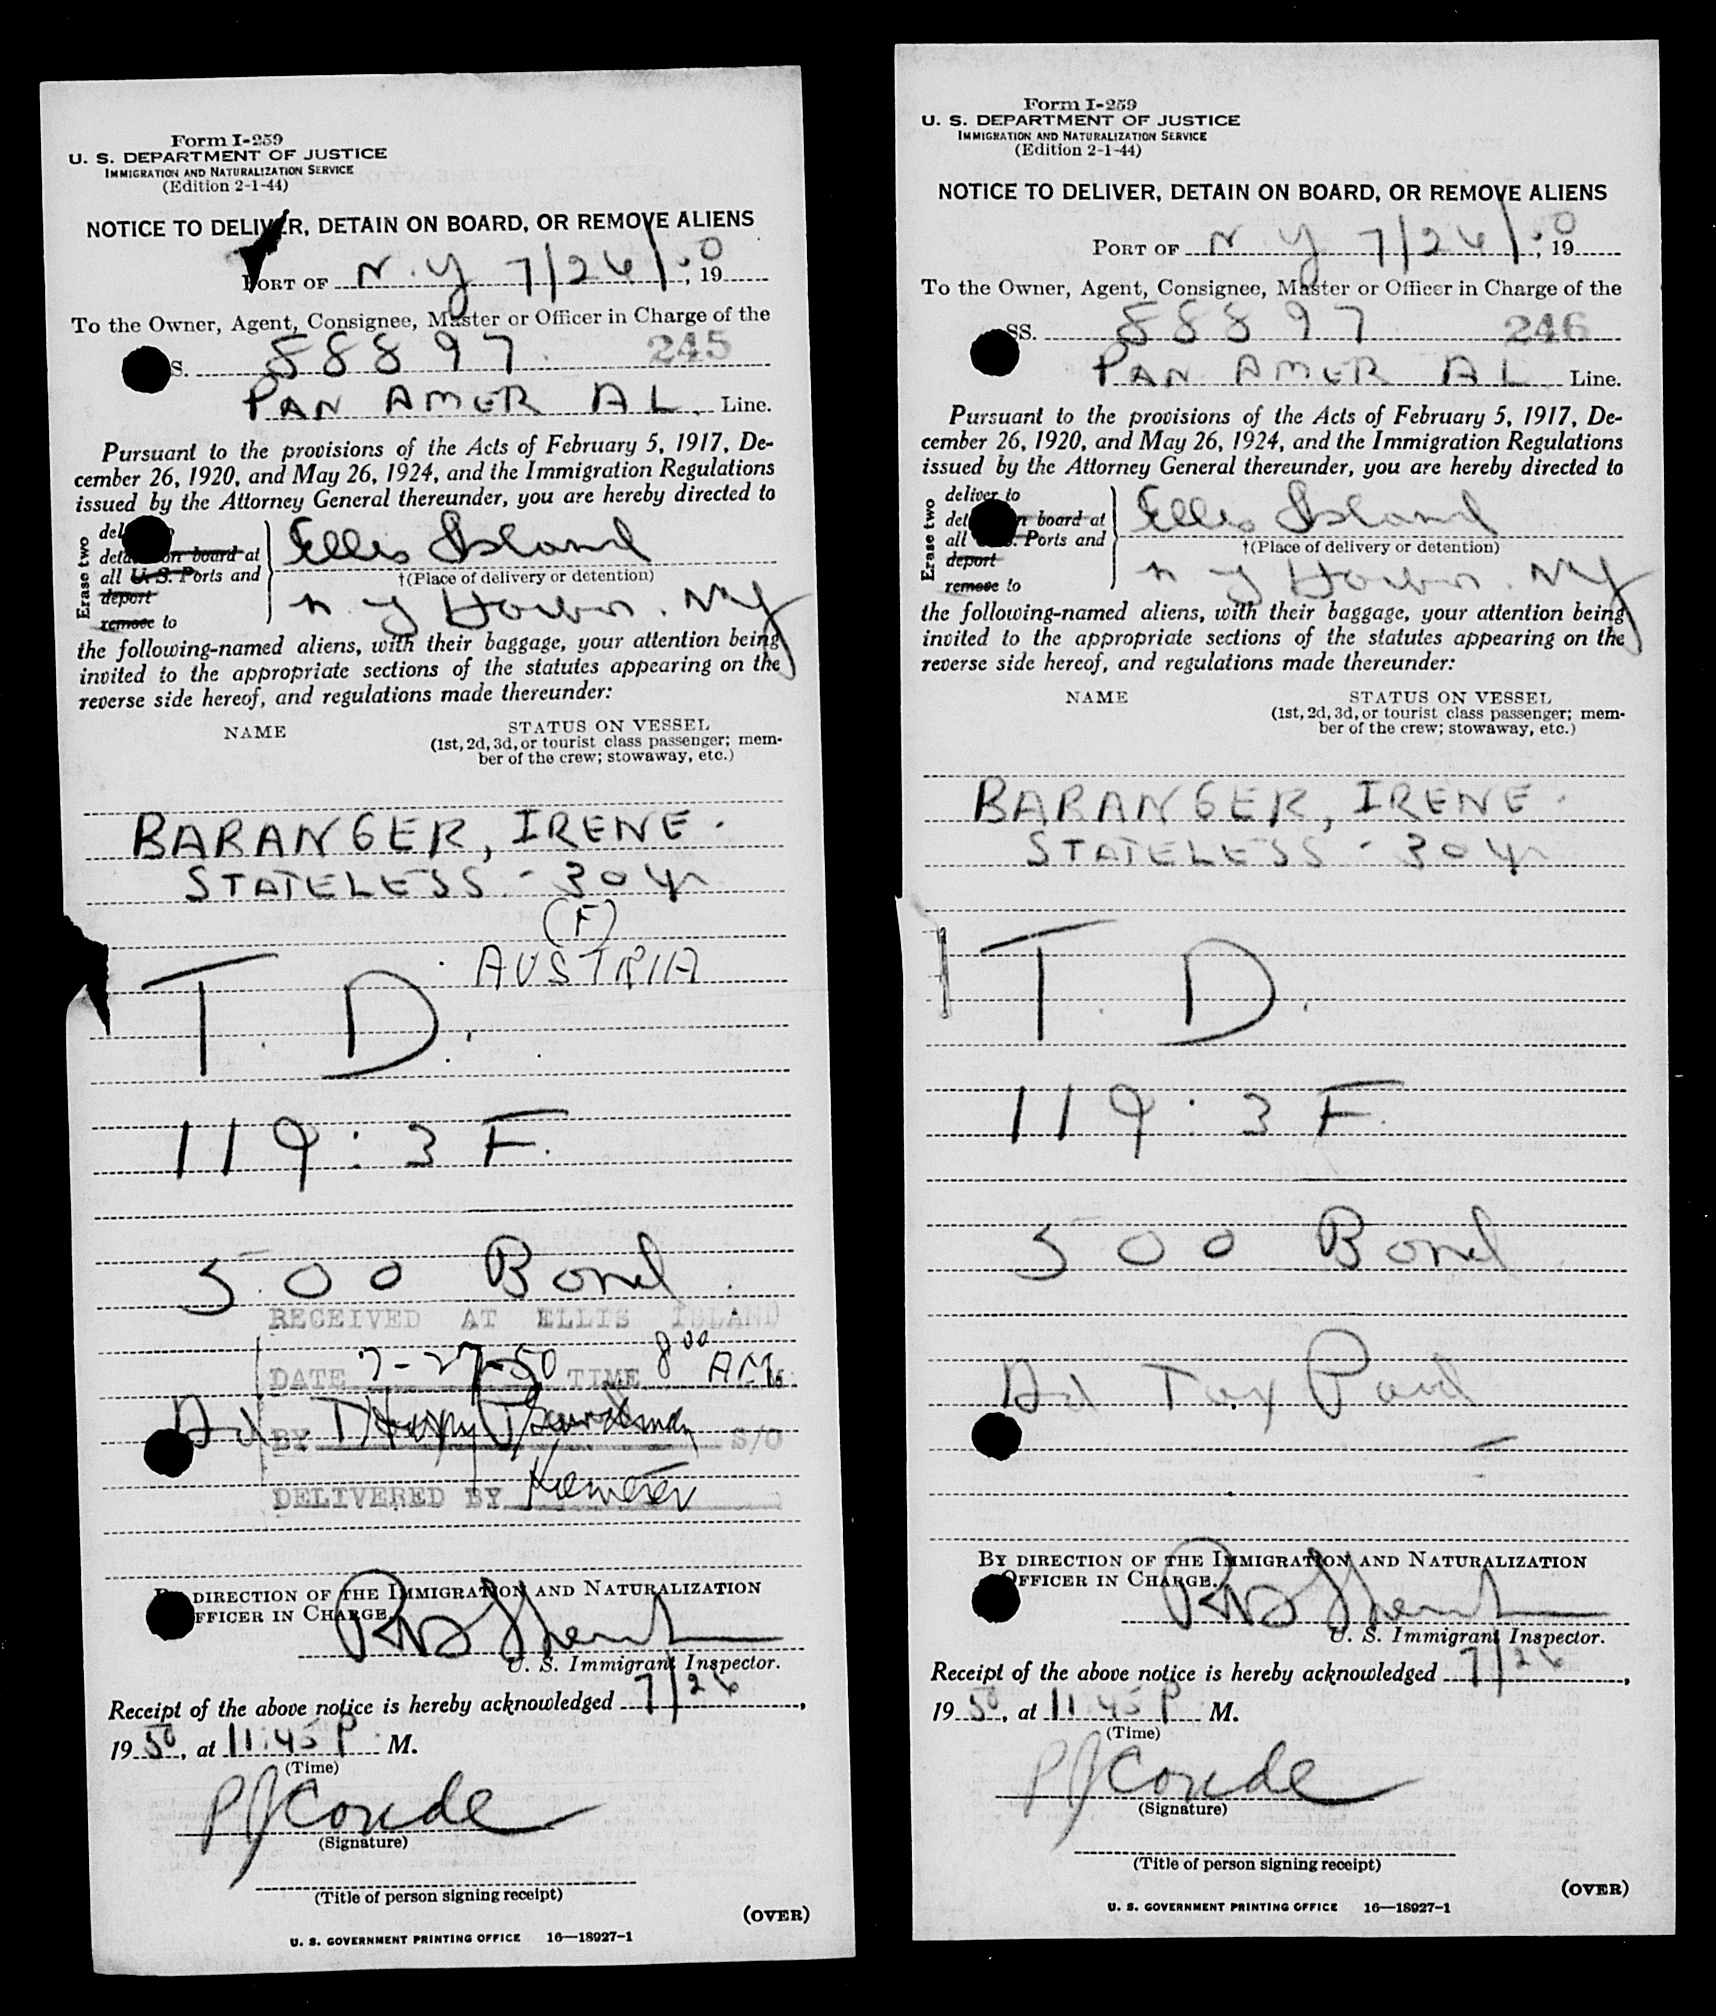 Form I-259
U. S. DEPARTMENT OF JUSTICE
IMMIGRATION AND NATURALIZATION SERVICE
(Edition 2-1-44)
NOTICE TO DELIVER, DETAIN ON BOARD, OR REMOVE ALIENS
PORT OF N.Y 7/26/50, 19
To the Owner, Agent, Consignee, Master or Officer in Charge of the
S. 88897 245
PAN AMER AL. Line.
Pursuant to the provisions of the Acts of February 5, 1917, De-
cember 26, 1920, and May 26, 1924, and the Immigration Regulations
issued by the Attorney General thereunder, you are hereby directed to
Erase two
del
deta on board at
all U. S. Ports and
deport
remove to
Ellis Island
†(Place of delivery or detention)
N Y Harbor. NY
the following-named aliens, with their baggage, your attention being
invited to the appropriate sections of the statutes appearing on the
reverse side hereof, and regulations made thereunder:
NAME STATUS ON VESSEL
(1st, 2d, 3d, or tourist class passenger; mem-
ber of the crew; stowaway, etc.)
BARANGER, IRENE.
STATELESS - 30 yr
(F)
AUSTRIA
T. D.
119:3 F.
500 Bond
RECEIVED AT ELLIS ISLAND
DATE 7-27-50 TIME 8 00 AM.
Ad Tax Paid
BY S/O
DELIVERED BY
BY DIRECTION OF THE IMMIGRATION AND NATURALIZATION
OFFICER IN CHARGE.
U. S. Immigrant Inspector.
Receipt of the above notice is hereby acknowledged 7/26,
19 50, at 11:45 P M.
(Time)
PJ Conde
(Signature)
(Title of person signing receipt)
(OVER)
U. S. GOVERNMENT PRINTING OFFICE 16—18927-1
Form I-259
U. S. DEPARTMENT OF JUSTICE
IMMIGRATION AND NATURALIZATION SERVICE
(Edition 2-1-44)
NOTICE TO DELIVER, DETAIN ON BOARD, OR REMOVE ALIENS
PORT OF N.Y 7/26/50, 19
To the Owner, Agent, Consignee, Master or Officer in Charge of the
SS. 88897 246
PAN AMER AL Line.
Pursuant to the provisions of the Acts of February 5, 1917, De-
cember 26, 1920, and May 26, 1924, and the Immigration Regulations
issued by the Attorney General thereunder, you are hereby directed to
Erase two
deliver to
det n board at
all S. Ports and
deport
remove to
Ellis Island
†(Place of delivery or detention)
N Y Harbor. NY
the following-named aliens, with their baggage, your attention being
invited to the appropriate sections of the statutes appearing on the
reverse side hereof, and regulations made thereunder:
NAME STATUS ON VESSEL
(1st, 2d, 3d, or tourist class passenger; mem-
ber of the crew; stowaway, etc.)
BARANGER, IRENE.
STATELESS - 30 yr
T. D.
119:3 F.
500 Bond
Ad Tax Paid
BY DIRECTION OF THE IMMIGRATION AND NATURALIZATION
OFFICER IN CHARGE.
U. S. Immigrant Inspector.
Receipt of the above notice is hereby acknowledged 7/26,
19 50, at 11 45 P M.
(Time)
PJ Conde
(Signature)
(Title of person signing receipt)
(OVER)
U. S. GOVERNMENT PRINTING OFFICE 16—18927-1